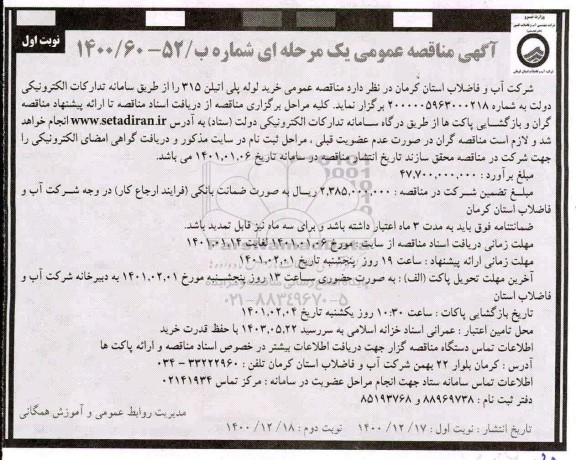 وزارت نیرو
نوبت اول
آگهی مناقصه عمومی یک مرحله ای شماره ب/۵۲-۱۴۰۰/۶۰
شرکت آب و فاضلاب استان کرمان در نظر دارد مناقصه عمومی خرید لوله پلی اتیلن ۳۱۵ را از طریق سامانه تدارکات الکترونیکی
دولت به شماره ۲۰۰۰۰۰۵۹۶۳۰۰۰۲۱۸ برگزار نماید. کلیه مراحل برگزاری مناقصه از دریافت اسناد مناقصه تا ارائه پیشنهاد مناقصه
گران و بازگشایی پاکت ها از طریق درگاه سامانه تدارکات الکترونیکی دولت (ستاد) به آدرس www.setadiran.ir انجام خواهد
شد و لازم است مناقصه گران در صورت عدم عضویت قبلی ، مراحل ثبت نام در سایت مذکور و دریافت گواهی امضای الکترونیکی را
جهت شرکت در مناقصه محقق سازند تاریخ انتشار مناقصه در سامانه تاریخ ۱۴۰۱.۰۱.۰۶ می باشد.
مبلغ برآورد : ۴۷.۷۰۰.۰۰۰.۰۰۰
مبلغ تضمین شرکت در مناقصه : ۲.۳۸۵.۰۰۰.۰۰۰ ریال به صورت ضمانت بانکی (فرایند ارجاع کار) در وجه شرکت آب و
فاضلاب استان کرمان
ضمانتنامه فوق باید به مدت ۳ ماه اعتبار داشته باشد و برای سه ماه نیز قابل تمدید باشد.
مهلت زمانی دریافت اسناد مناقصه از سایت : مورخ ۱۴۰۱.۰۱.۰۶ لغایت ۱۴۰۱.۰۱.۱۴
مهلت زمانی ارائه پیشنهاد : ساعت ۱۹ روز پنجشنبه تاریخ ۱۴۰۱.۰۲.۰۱
آخرین مهلت تحویل پاکت (الف) : به صورت حضوری ساعت ۱۳ روز پنجشنبه مورخ ۱۴۰۱.۰۲.۰۱ به دبیرخانه شرکت آب و
فاضلاب استان
تاریخ بازگشایی پاکات : ساعت ۱۰:۳۰ روز یکشنبه تاریخ ۱۴۰۱.۰۲.۰۴
محل تامین اعتبار : عمرانی اسناد خزانه اسلامی به سررسید ۱۴۰۳.۰۵.۲۲ با حفظ قدرت خرید
اطلاعات تماس دستگاه مناقصه گزار جهت دریافت اطلاعات بیشتر در خصوص اسناد مناقصه و ارائه پاکت ها
آدرس : کرمان بلوار ۲۲ بهمن شرکت آب و فاضلاب استان کرمان تلفن : ۳۳۲۲۲۹۶۰ - ۰۳۴
اطلاعات تماس سامانه ستاد جهت انجام مراحل عضویت در سامانه : مرکز تماس ۰۲۱۴۱۹۳۴
دفتر ثبت نام : ۸۸۹۶۹۷۳۸ و ۸۵۱۹۳۷۶۸
مدیریت روابط عمومی و آموزش همگانی
تاریخ انتشار : نوبت اول : ۱۴۰۰/۱۲/۱۷ نوبت دوم : ۱۴۰۰/۱۲/۱۸
۰۲۱-۸۸۳۴۹۶۷۰-۵